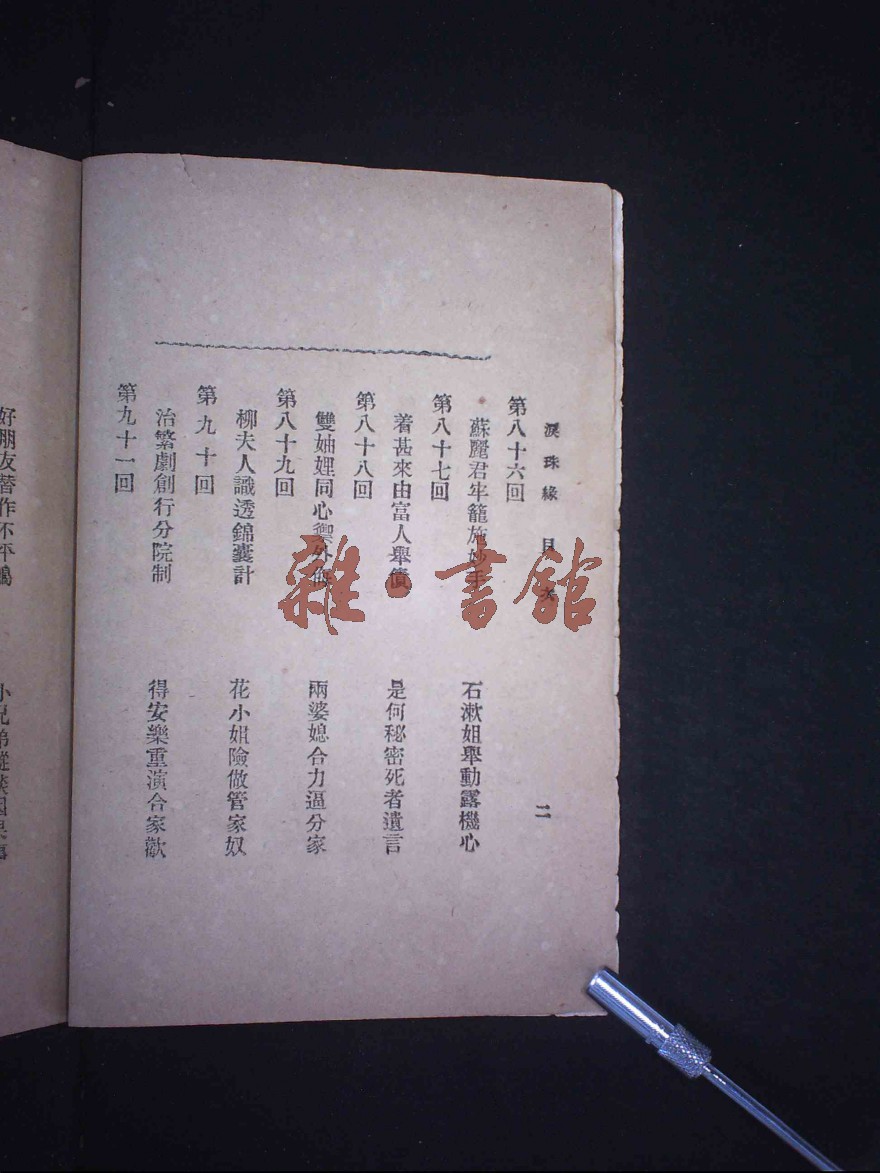 淚珠緣 目次 二
第八十六回
蘇麗君牢籠施妙手 石漱姐舉動露機心
第八十七回
着甚來由富人舉債 是何秘密死者遺言
第八十八回
雙妯娌同心禦外侮 兩婆媳合力逼分家
第八十九回
柳夫人識透錦囊計 花小姐險做管家奴
第九十回
治繁劇創行分院制 得安樂重演合家歡
第九十一回
好朋友替作不平鳴 小兄弟
雜·書館